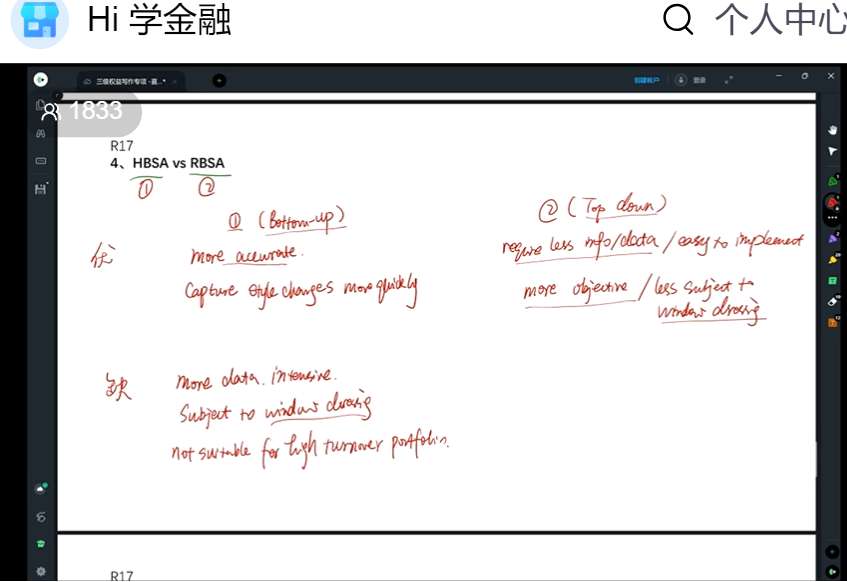 Hi 学金融
个人中心
三级权益写作专项 -直...*
创建帐户
登录
1833
R17
4、HBSA vs RBSA
① ②
① (Bottom-up)
② (Top down)
优
more accurate.
require less info/data / easy to implement
Capture style changes more quickly
more objective / less subject to
window dressing
缺
more data. intensive.
Subject to window dressing
not suitable for high turnover portfolio.
R17